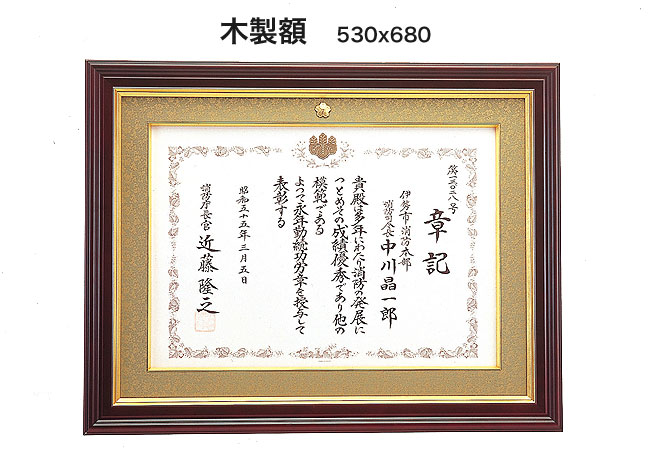 木製額 530x680
第一三〇二八号
章記
伊勢市消防本部
消防司令長 中川晶一郎
貴殿は多年にわたり消防の発展に
つとめその成績優秀であり他の
模範である
よつて永年勤続功労章を授与して
表彰する
昭和五十五年三月五日
消防庁長官 近藤隆之